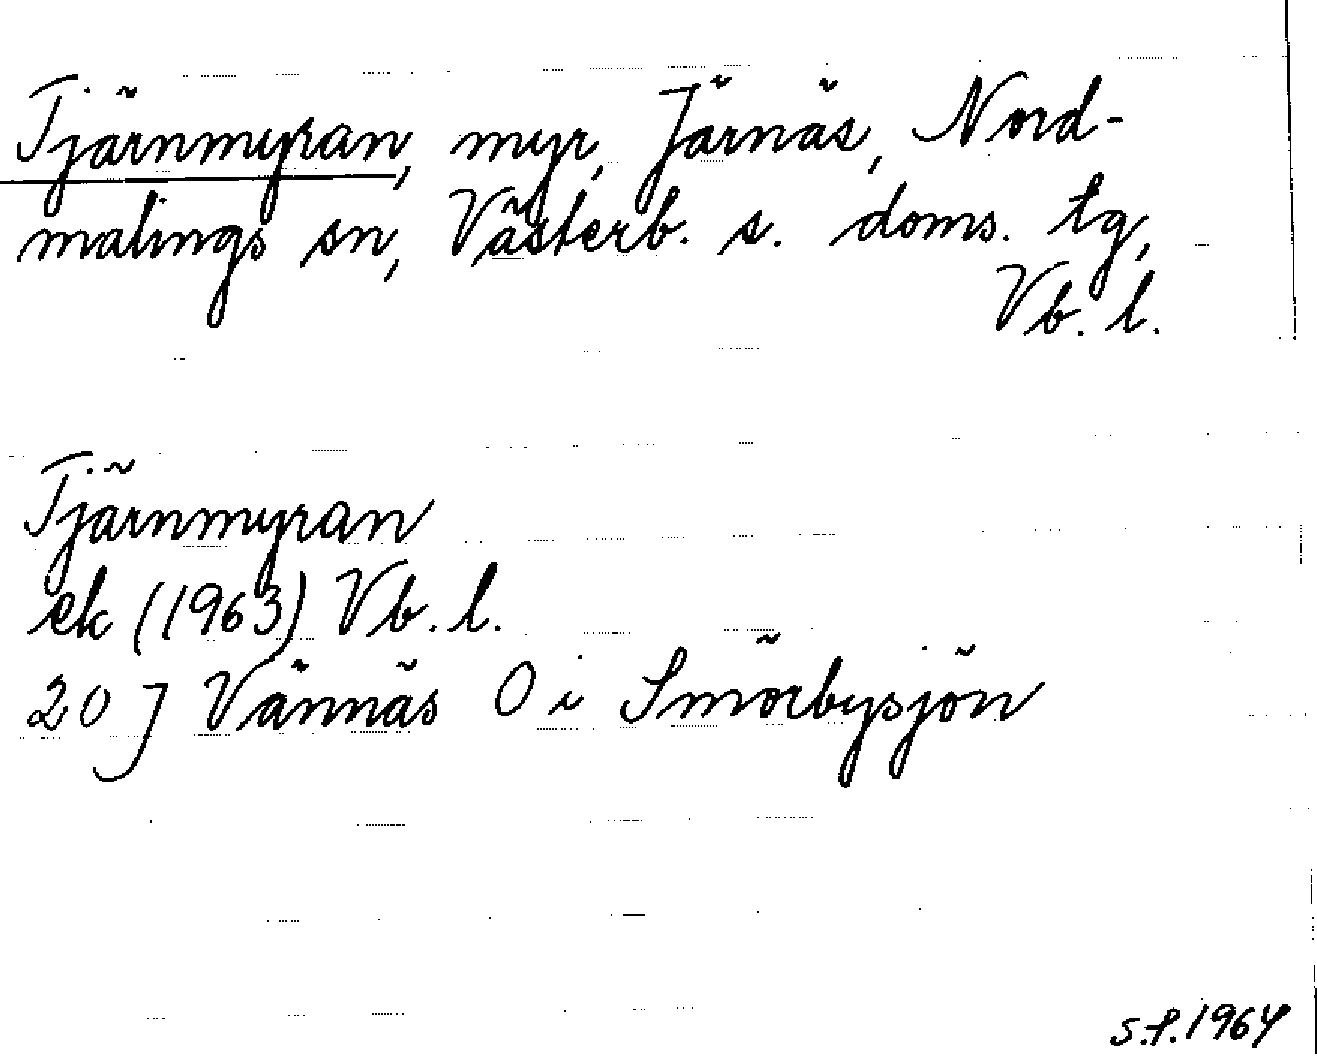 Tjärnmyran, myr, Järnäs, Nord-
malings sn, Västerb. s. doms. tg,
Vb. l.
Tjärnmyran
ek (1963) Vb. l.
20 J Vännäs O i Smörbysjön
S.f. 1964